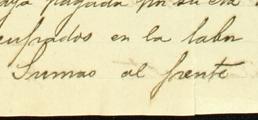 pagada por su cta
cufrados en la labor
Sumas al frente